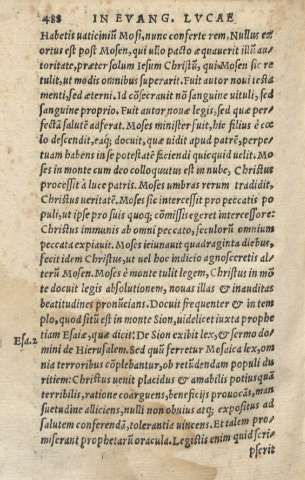 488 IN EVANG. LVCAE
Habetis uaticiniũ Mosi, nunc conferte rem, Nullus ex
ortus est post Mosen, qui ullo pacto æquauerit illũ au-
toritate, præter solum Iesum Christũ, qui Mosen sic re
tulit, ut modis omnibus superarit. Fuit autor noui testa
menti, sed æterni. Id cõsecrauit nõ sanguine uituli, sed
sanguine proprio. Fuit autor nouæ legis, sed quæ per-
fectã salutẽ adferat. Moses minister fuit, hic filius è cœ
lo descendit, eaq́; docuit, quæ uidit apud patrẽ, perpe-
tuam habens in se potestatẽ faciendi quicquid uelit. Mo
ses in monte cum deo colloquutus est in nube, Christus
processit à luce patris. Moses umbras rerum tradidit,
Christus ueritatẽ. Moses sic intercessit pro peccatis po
puli, ut ipse pro suis quoq; cõmissis egeret intercessore:
Christus immunis ab omni peccato, seculorũ omnium
peccata expiauit. Moses ieiunauit quadraginta diebus,
fecit idem Christus, ut uel hoc indicio agnosceretis al-
terũ Mosen. Moses è monte tulit legem, Christus in mõ
te docuit legis absolutionem, nouas illas & inauditas
beatitudines pronũcians. Docuit frequenter & in tem
plo, quod sitũ est in monte Sion, uidelicet iuxta prophe
tiam Esaiæ, quæ dicit: De Sion exibit lex, & sermo do-
Esa.2 mini de Hierusalem. Sed quũ ferretur Mosaica lex, om
nia terroribus cõplebantur, ob retũdendam populi du
ritiem: Christus uenit placidus & amabilis potius quã
terribilis, ratione coarguens, beneficijs prouocãs, man
suetudine alliciens, nulli non obuius atq; expositus ad
salutem conferendã, tolerantia uincens. Et talem pro-
miserant prophetarũ oracula. Legistis enim quid scri-
pserit